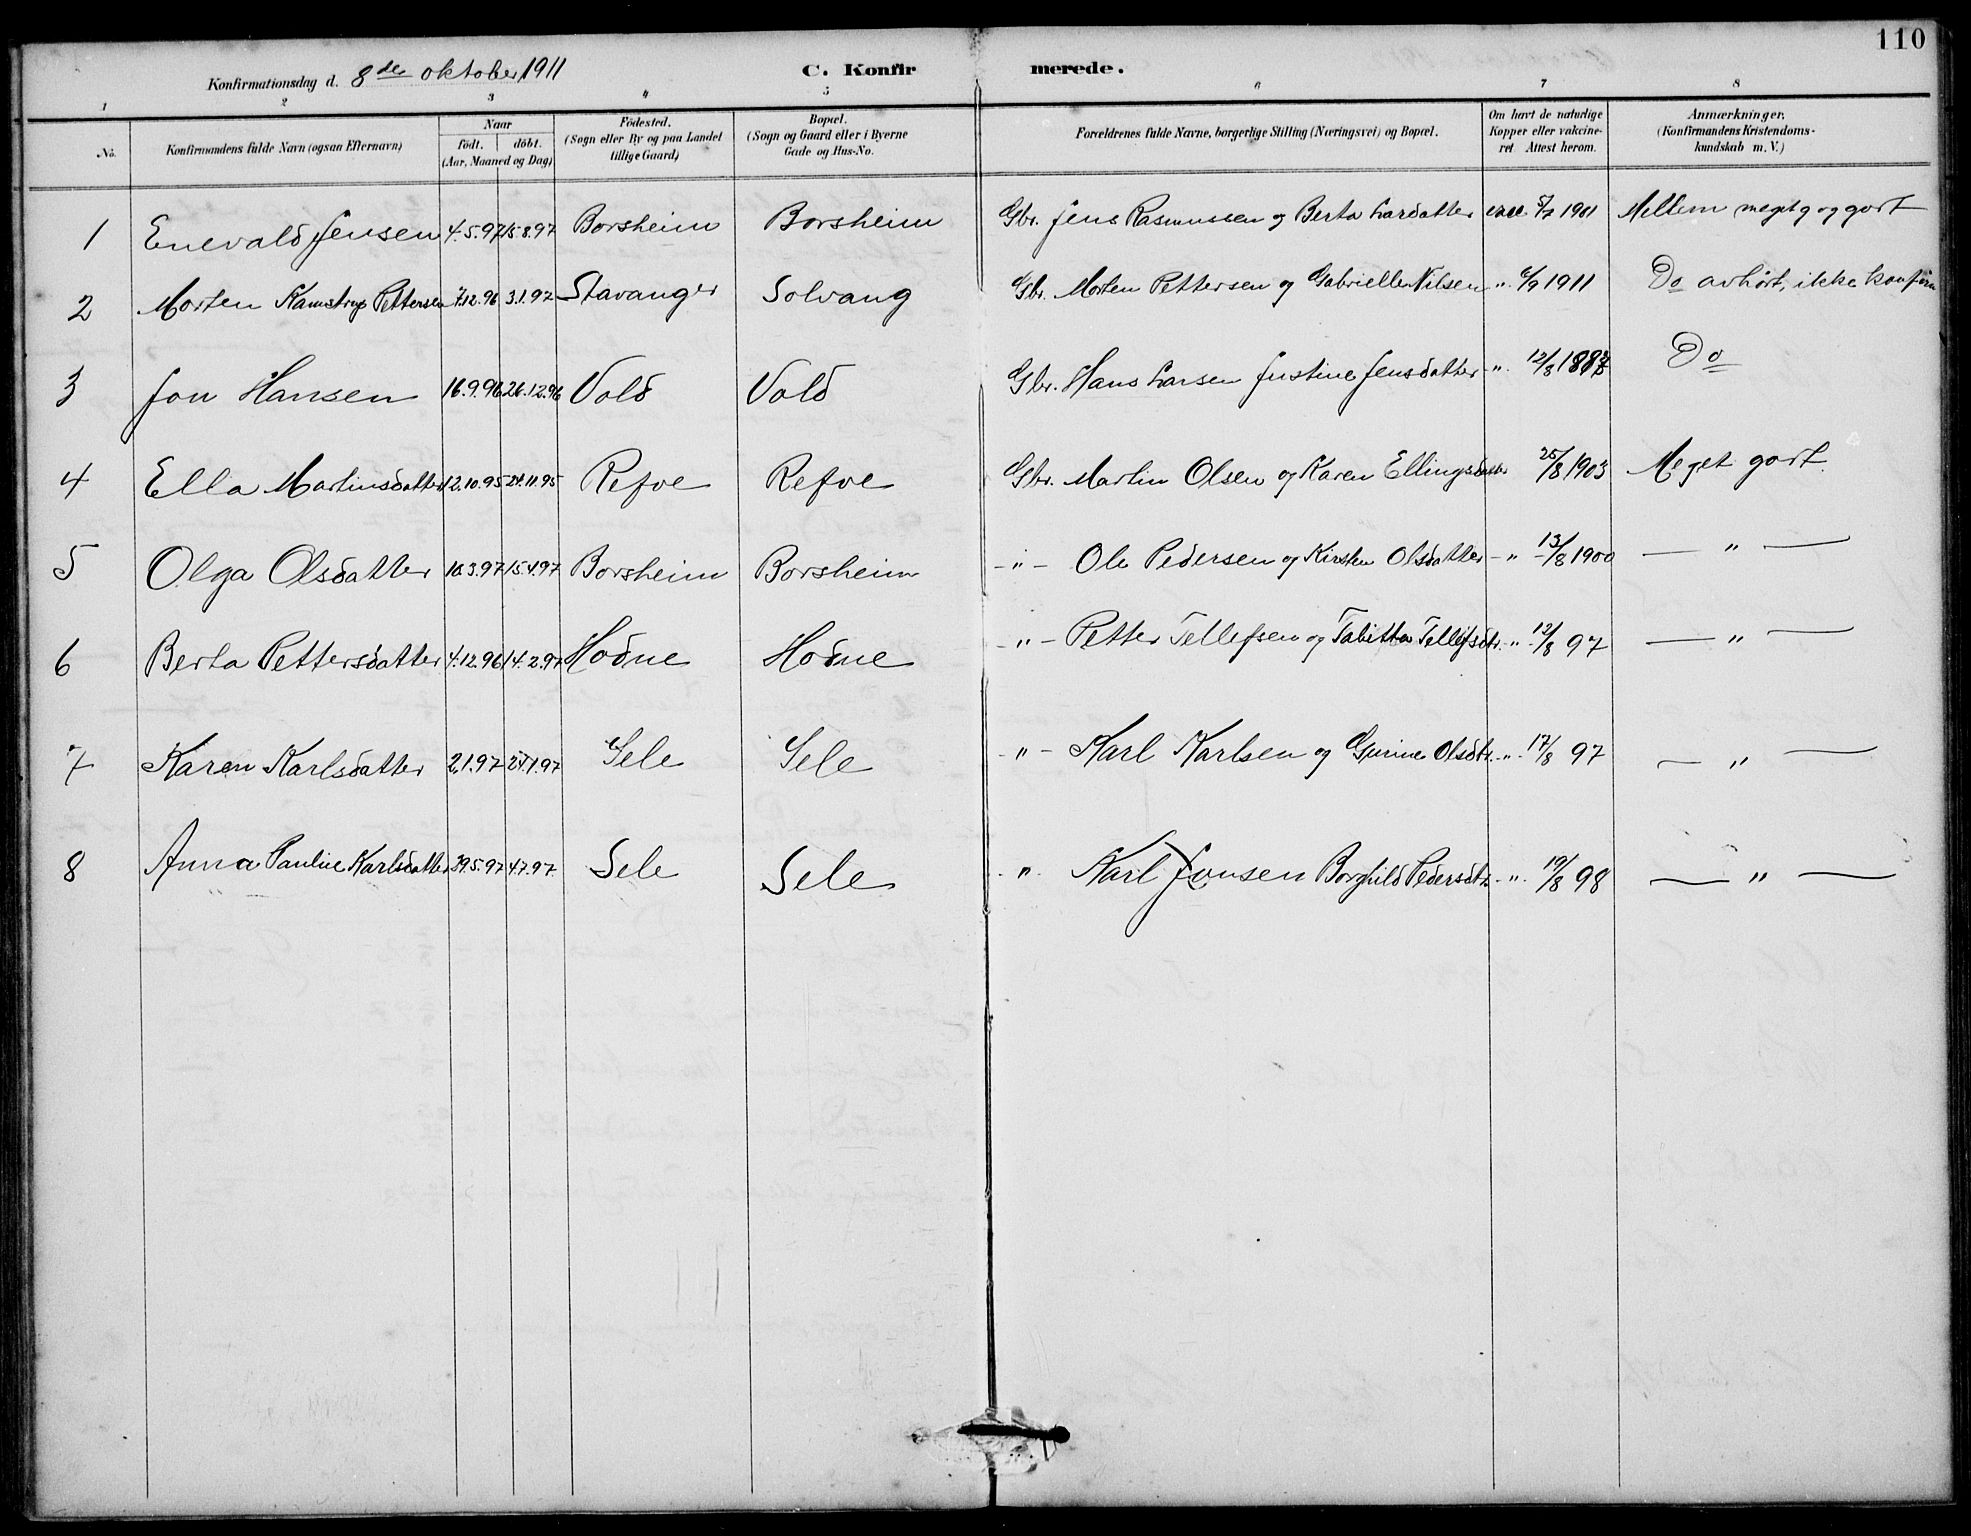 110
Konfirmationsdag d. 8de oktober 1911 C. Konfirmerede.
1 2 3 4 5 6 7 8
No. Konfirmandens fulde Navn (ogsaa Efternavn) Naar födt. döbt. (Aar, Maaned og Dag) Födested. (Sogn eller By og paa Landet tillige Gaard) Bopæl. (Sogn og Gaard eller i Byerne Gade og Hus-No. Forældrenes fulde Navne, borgerlige Stilling (Næringsvei) og Bopæl. Om havt de naturlige Kopper eller vakcineret Attest herom. Anmærkninger. (Konfirmandens Kristendomskundskab m. V.)
1 Enevald Jensen 4.5.97 15.8.97 Borsheim Borsheim Gbr. Jens Rasmussen og Berta Larsdatter vacc. 5/7 1901 Mellem meget g og godt
2 Morten Kamstrup Pettersen 7.12.96 3.1.97 Stavanger Solvang Gbr. Morten Pettersen og Gabrielle Nilsen " 6/9 1911 Do avhørt, ikke konfirm
3 Jon Hansen 16.9.96 26.12.96 Vold Vold Gbr. Hans Larsen Justine Jensdatter - " 12/8 Do
4 Ella Martinsdatter 12.10.95 24.11.95 Refve Refve Gbr. Martin Olsen og Karen Ellingsdatter 25/8 1903 Meget godt.
5 Olga Olsdatter 10.3.97 15.4.97 Borsheim Borsheim - " - Ole Pedersen og Kirsten Olsdatter - " 13/8 1900 — " —
6 Berta Pettersdatter 4.12.96 14.2.97 Hodne Hodne - " - Petter Tellefsen og Tabitta Tellefsdtr. - " 12/8 97 — " —
7 Karen Karlsdatter 2.1.97 24.1.97 Sele Sele - " - Karl Karlsen og Gurine Olsdtr. - " - 17/8 97 — " —
8 Anna Pauline Karlsdatter 4.7.97 Sele Sele - " - Karl Jonsen Borghild Pedersdtr. - " - 19/8 98 — " —